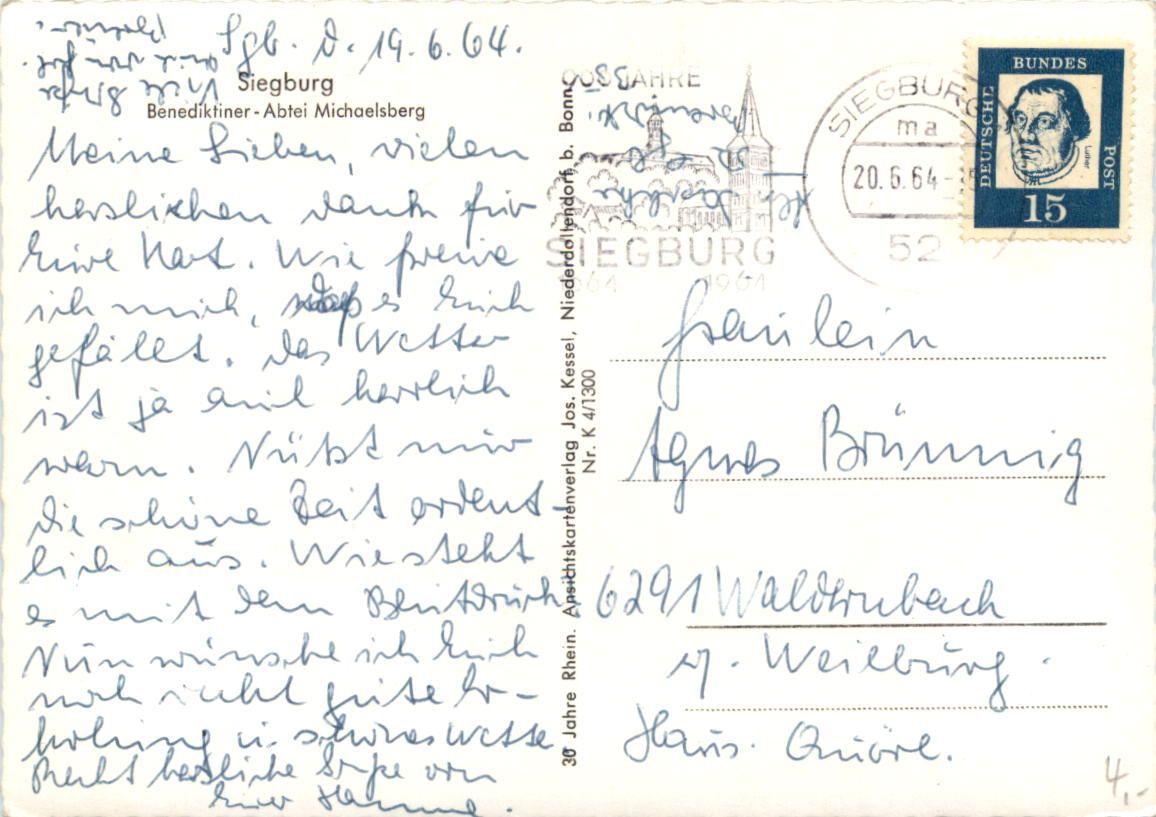 Sgb. d. 19.6.64.
Siegburg
Benediktiner-Abtei Michaelsberg
Meine Lieben, vielen
herzlichen Dank für
Eure Kart. Wie freue
ich mich, daß es Euch
gefällt. Das Wetter
ist ja auch herrlich
warm. Nützt nur
die schöne Zeit ordent-
lich aus. Wie steht
es mit dem Blutdruck?
Nun wünsche ich Euch
noch recht gute Er-
holung u. schönes Wetter
Recht herzliche Grüße von
Eurer Hanna.
Viele Grüße
auch von
30 Jahre Rhein. Ansichtskartenverlag Jos. Kessel, Niederdollendorf b. Bonn
Nr. K 4/1300
900 JAHRE
SIEGBURG
1064 1964
SIEGBURG
ma
20.6.64
52
BUNDES
DEUTSCHE
POST
Luther
15
Fräulein
Agnes Brünnig
6291 Waldernbach
ü. Weilburg.
Haus Quirl.
4,-